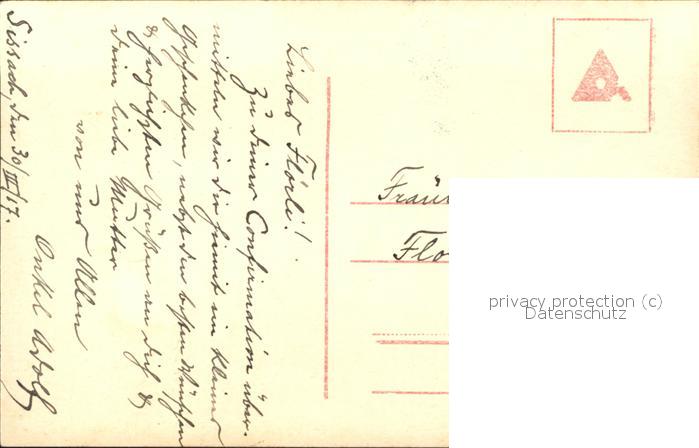 Sissach, den 30/III/17.
Liebes Flörli!
Zu deiner Confirmation über-
mitteln wir dir hiemit ein kleines
Geschenkchen, nebst den besten Wünschen
& herzlichsten Grüßen an dich &
deine liebe Mutter
von uns Allen
Onkel Adolf
Fräu
Flo
privacy protection (c)
Datenschutz